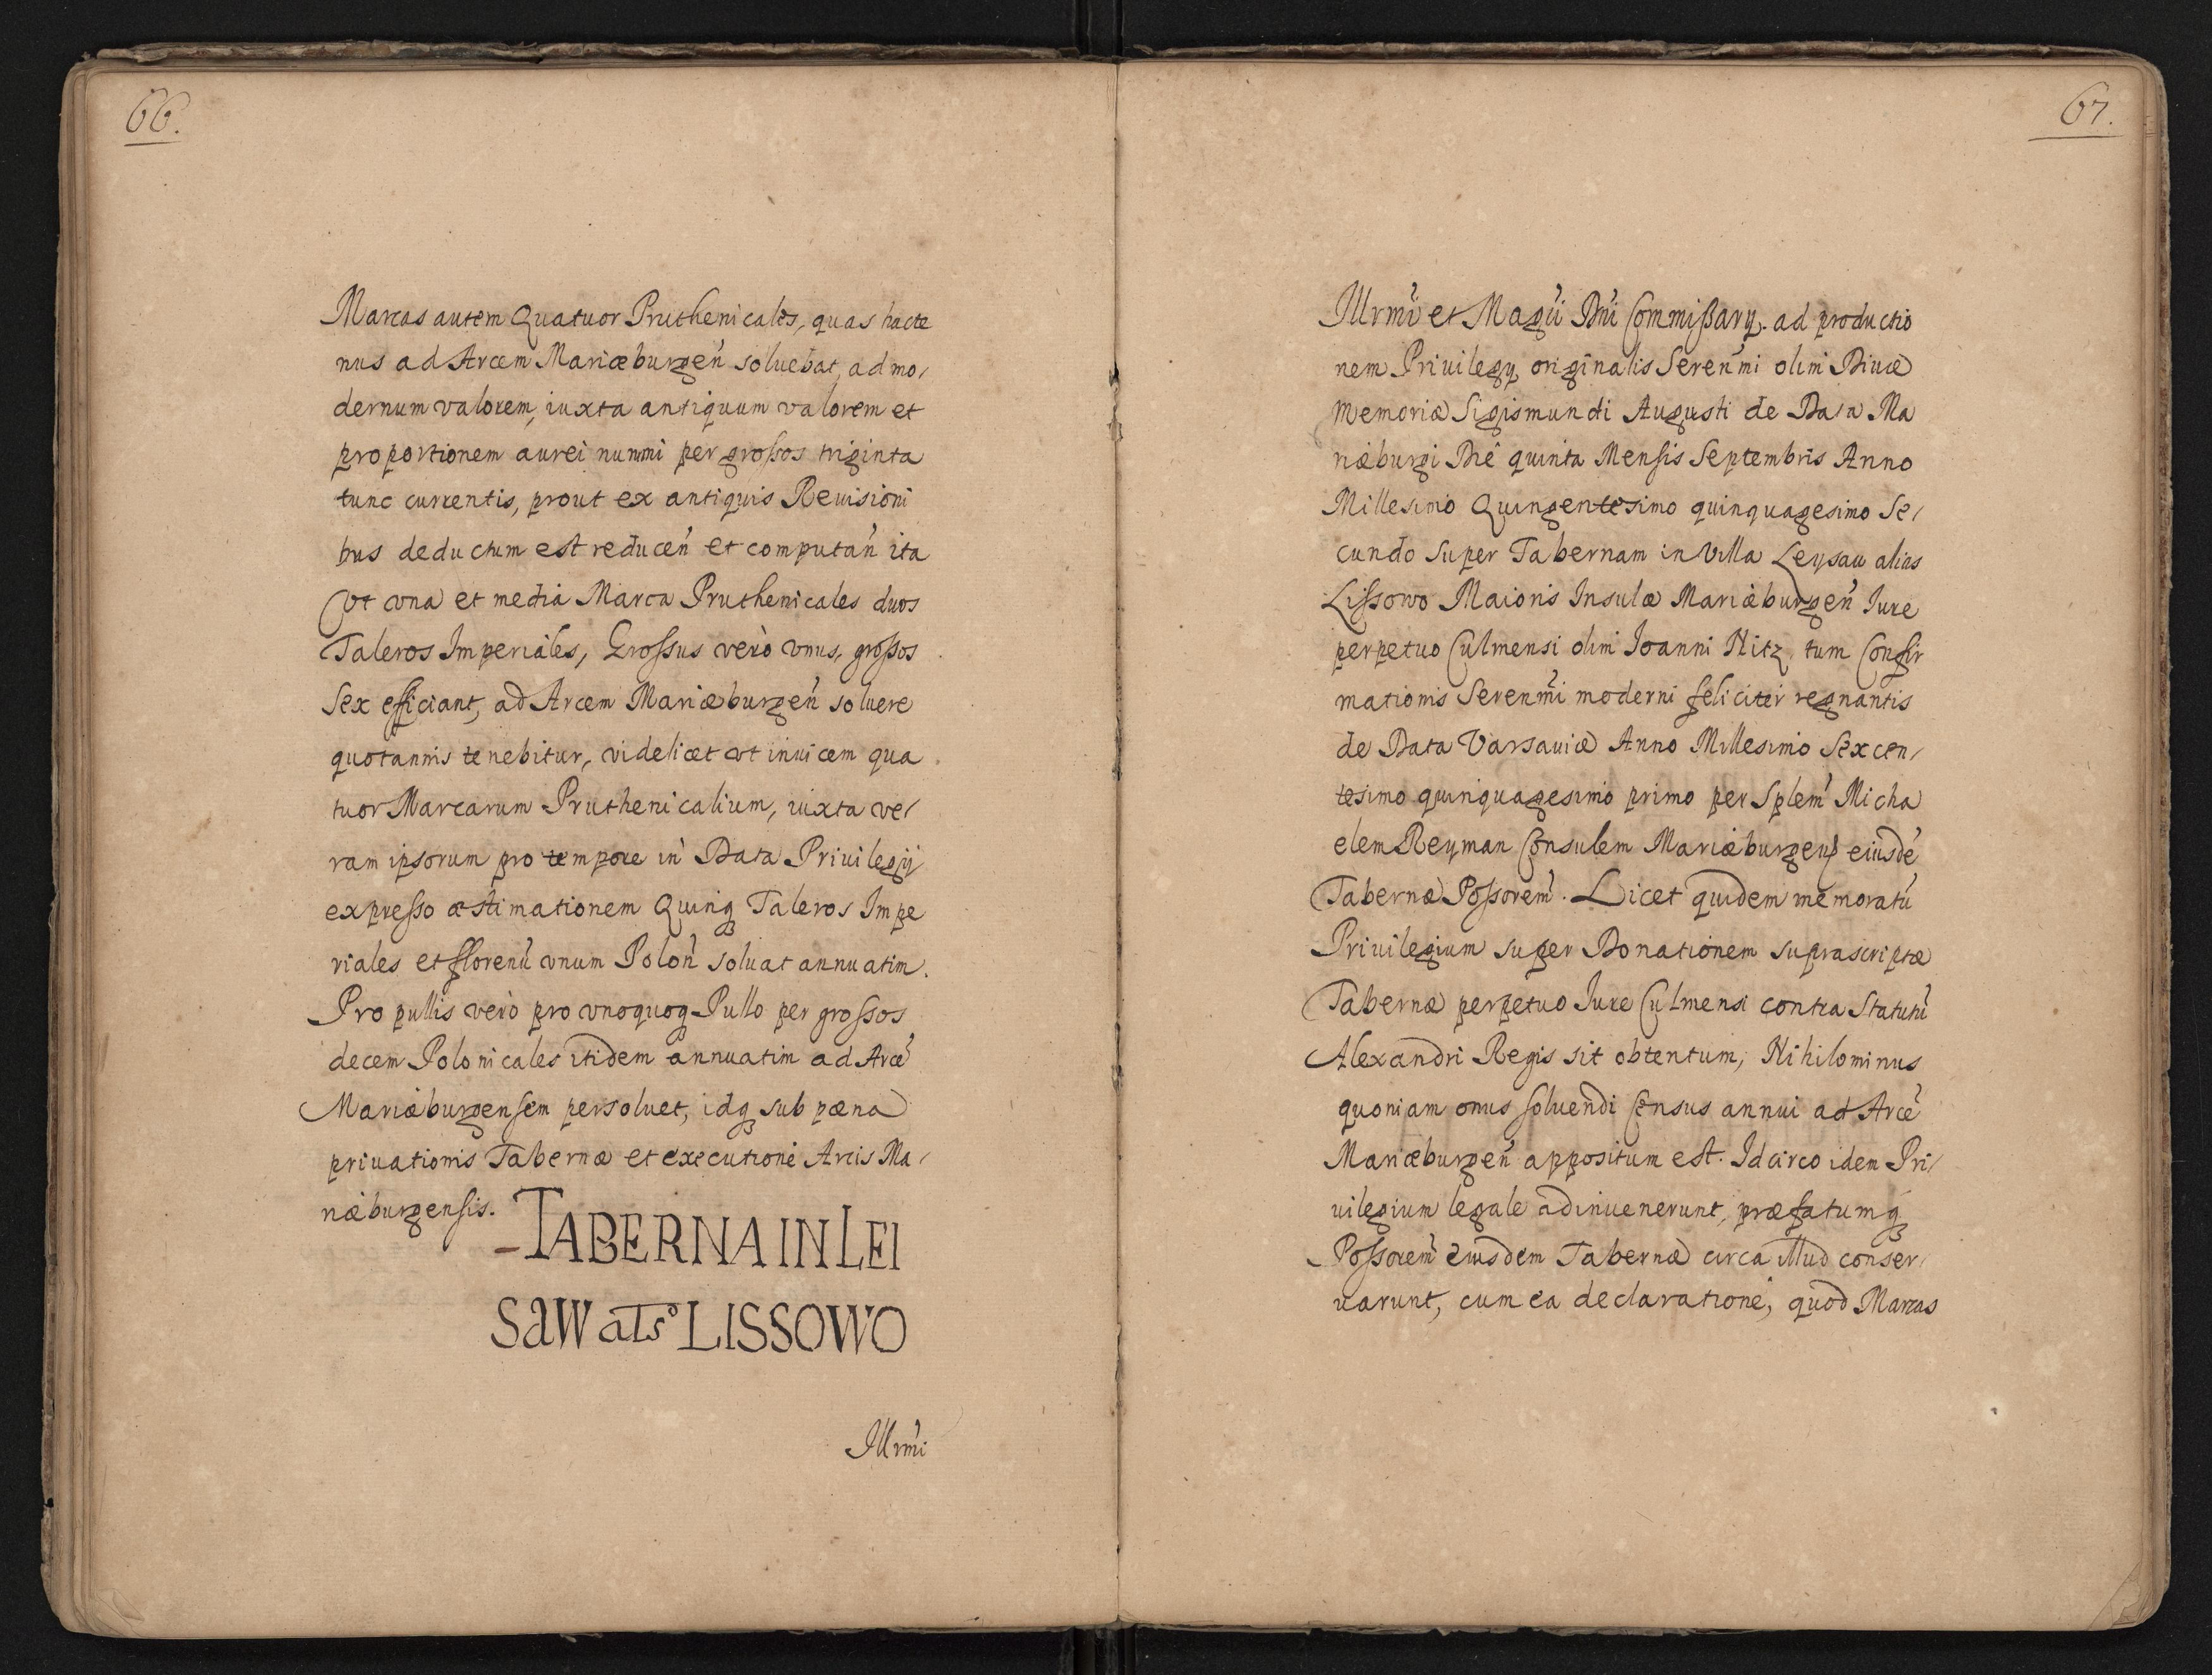 66.
Marcas autem Quatuor Pruthenicales, quas hacte
nus ad Arcem Mariæburgen̄ soluebat, ad mo/
dernum valorem, iuxta antiquum valorem et
proportionem aurei nummi per grossos triginta
tunc currentis, prout ex antiquis Reuisioni
bus deductum est reducen̄ et computan̄ ita
vt vna et media Marca Pruthenicales duos
Taleros Imperiales, Grossus verò vnus, grossos
sex efficiant, ad Arcem Mariæburgen̄ soluere
quotannis tenebitur, videlicet vt inuicem qua
tuor Marcarum Pruthenicalium, iuxta ve/
ram ipsorum pro tempore in Data Priuilegij
expresso æstimationem Quinq Taleros Impe
riales et florenū vnum Polon̄ soluat annuatim.
Pro pullis verò pro vnoquoq Pullo per grossos
decem Polonicales itidem annuatim ad Arcē
Mariæburgensem persoluet, idq sub pæna
priuationis Tabernæ et executione Arcis Ma/
riæburgensis.
TABERNA IN LEI
SAW als° LISSOWO
Illrm̄i
67.
Illrm̄i et Magn̄i Dn̄i Commissarij. ad productio
nem Priuilegij originalis Seren̄mi olim Diuæ
memoriæ Sigismundi Augusti de Data Ma
riæburgi Die quinta Mensis Septembris Anno
Millesimo Quingentesimo quinquagesimo Se/
cundo super Tabernam in Villa Leysau alias
Lissowo Maioris Insulæ Mariæburgen̄ Iure
perpetuo Culmensi olim Ioanni Nitz, tum Confir
mationis Serenm̄i moderni feliciter regnantis
de Data Varsauiæ Anno Millesimo Sexcen/
tesimo quinquagesimo primo per Splem̄ Micha
elem Reyman Consulem Mariæburgens eiusdē
Tabernæ Possorem̄. Licet quidem memoratū
Priuilegium super Donationem suprascriptæ
Tabernæ perpetuo Iure Culmensi contra Statutū
Alexandri Regis sit obtentum, Nihilominus
quoniam onus soluendi Census annui ad Arcē
Mariæburgen̄ appositum est. Idcirco idem Pri/
uilegium legale adinuenerunt, præfatumq
Possorem̄ eiusdem Tabernæ circa illud conser/
uarunt, cum ea declaratione, quod Marcas